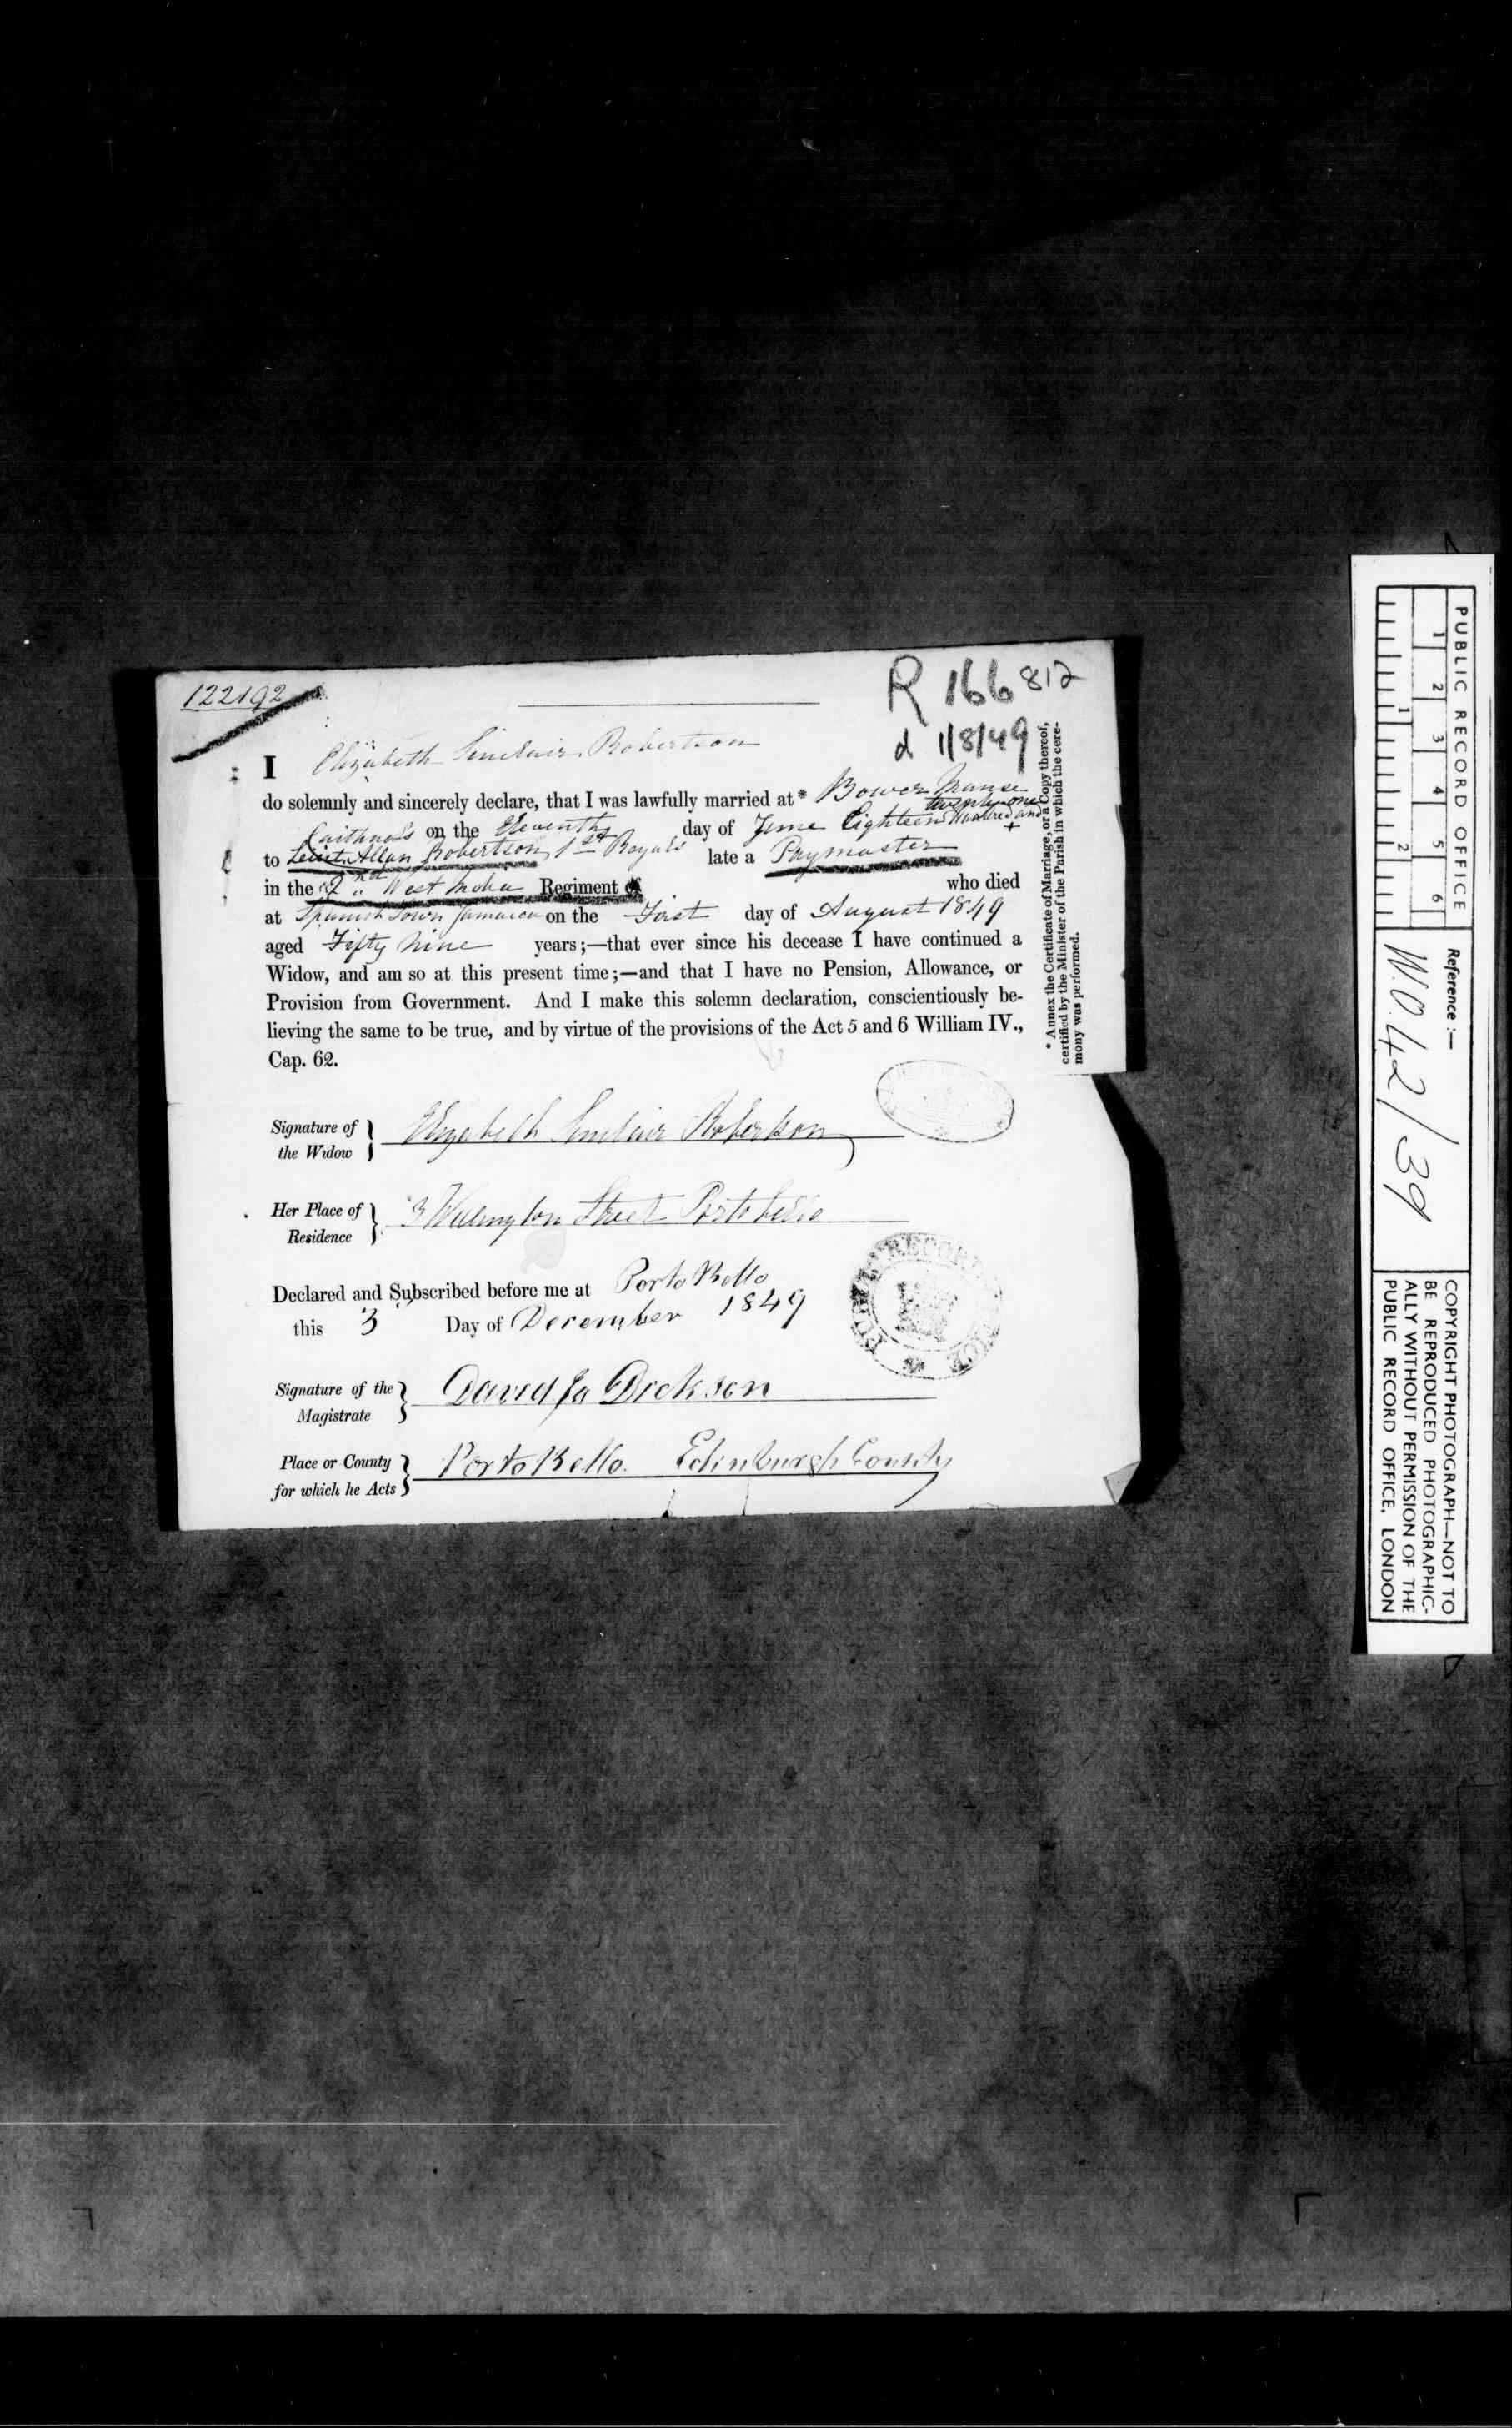 122192
R 166 812
d 1/8/49
I Elizabeth Sinclair Robertson
do solemnly and sincerely declare, that I was lawfully married at* Bower Manse
twenty one
Caithness on the Eleventh day of June Eighteen Hundred and +
to Lieut. Allan Robertson 1st Royals late a Paymaster
in the 2nd West India Regiment of who died
at Spanish Town Jamaica on the First day of August 1849
aged Fifty Nine years;—that ever since his decease I have continued a
Widow, and am so at this present time;—and that I have no Pension, Allowance, or
Provision from Government. And I make this solemn declaration, conscientiously be-
lieving the same to be true, and by virtue of the provisions of the Act 5 and 6 William IV.,
Cap. 62.
* Annex the Certificate of Marriage, or a Copy thereof,
certified by the Minister of the Parish in which the cere-
mony was performed.
Signature of
the Widow } Elizabeth Sinclair Robertson
Her Place of
Residence } 3 Wellington Street Portobello
Declared and Subscribed before me at Porto Bello
this 3 Day of December 1849
PUBLIC RECORD OFFICE
Signature of the
Magistrate } David Ja Dickson
Place or County
for which he Acts } Porto Bello. Edinburgh County
PUBLIC RECORD OFFICE
1 2 3 4 5 6
1 2
Reference :—
W.O. 42/39
COPYRIGHT PHOTOGRAPH—NOT TO
BE REPRODUCED PHOTOGRAPHIC-
ALLY WITHOUT PERMISSION OF THE
PUBLIC RECORD OFFICE, LONDON